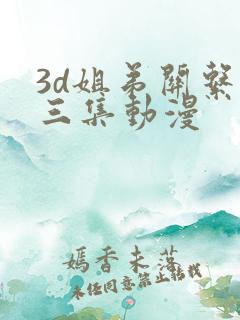 3d姐弟関繫
三集動漫
媽香未落
未经同意禁止转载